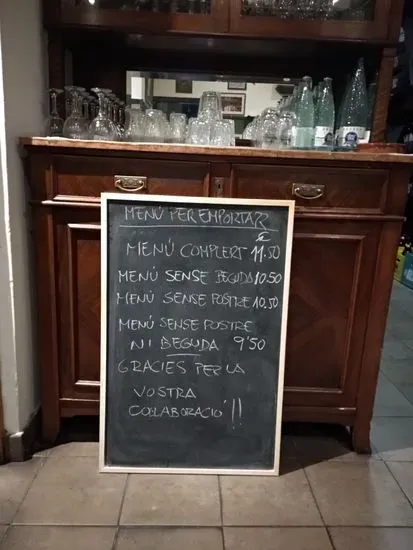 MENÚ PER EMPORTAR
€
MENÚ COMPLERT 11.50
MENÚ SENSE BEGUDA 10.50
MENÚ SENSE POSTRE 10.50
MENÚ SENSE POSTRE
NI BEGUDA 9'50
GRÀCIES PER LA
VOSTRA
COL·LABORACIÓ!!